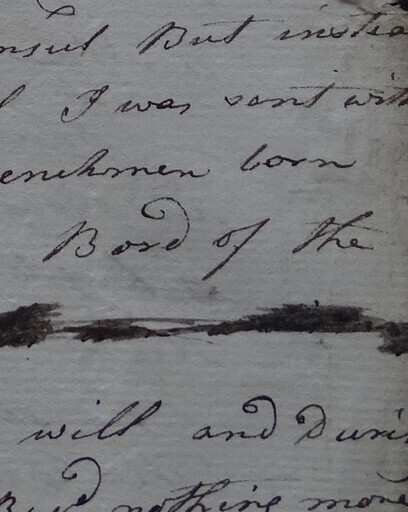 nsul But instea
I was sent with
enchmen born
Bord of the
will and Duri
nothing more